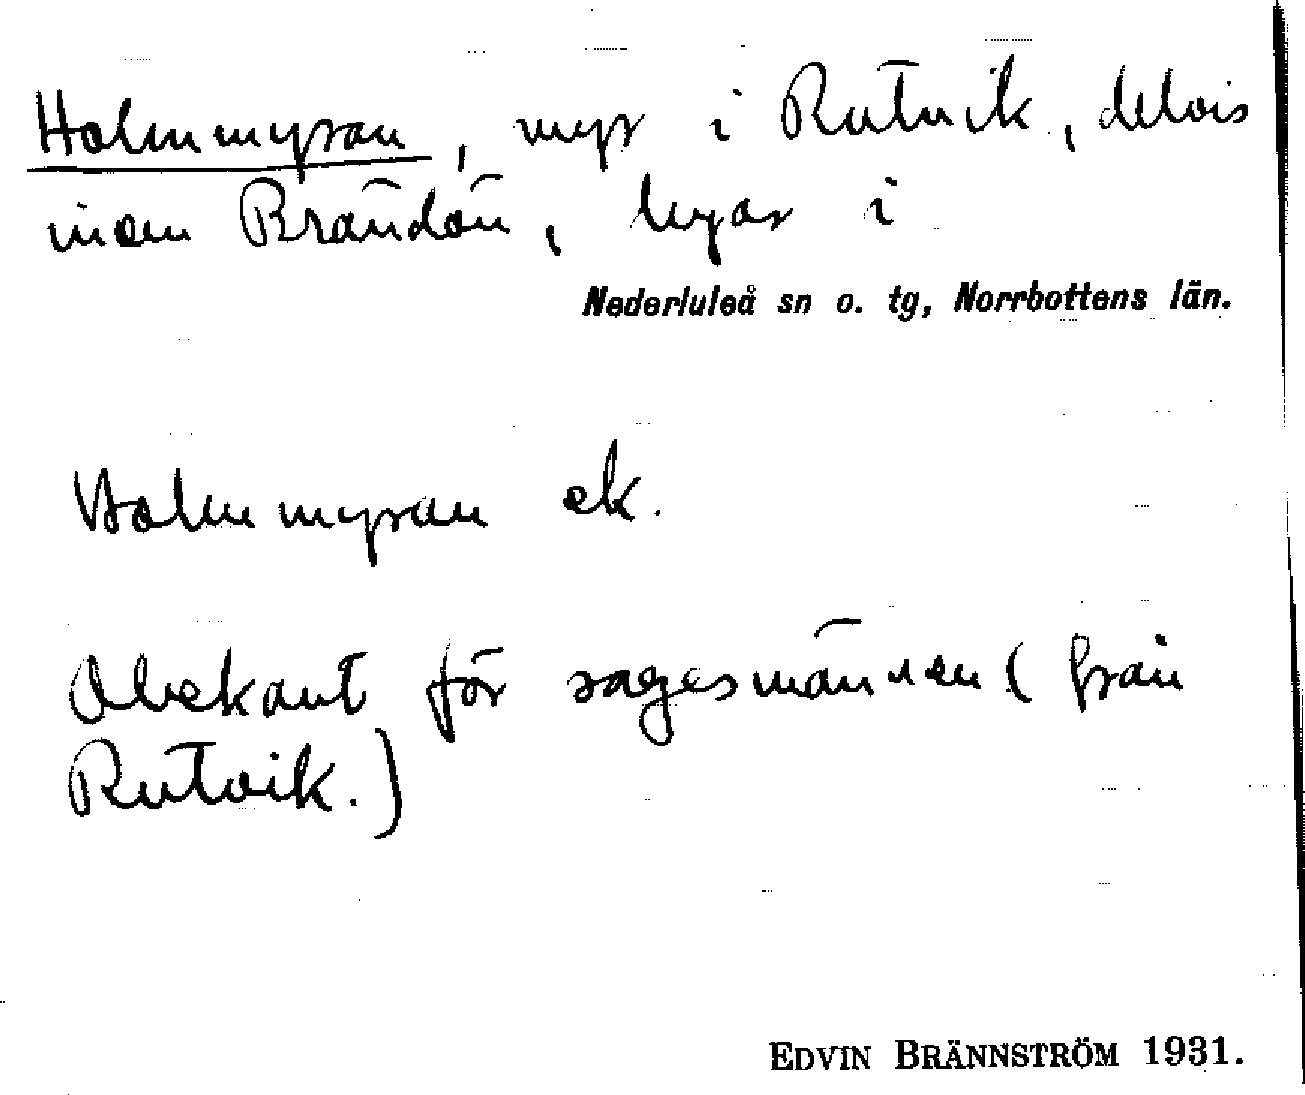 Holmmyran, myr i Rutvik, delvis
inom Brändön, byar i
Nederluleå sn o. tg, Norrbottens län.
Holmmyran ek.
Obekant för sagesmännen (från
Rutvik.)
EDVIN BRÄNNSTRÖM 1931.